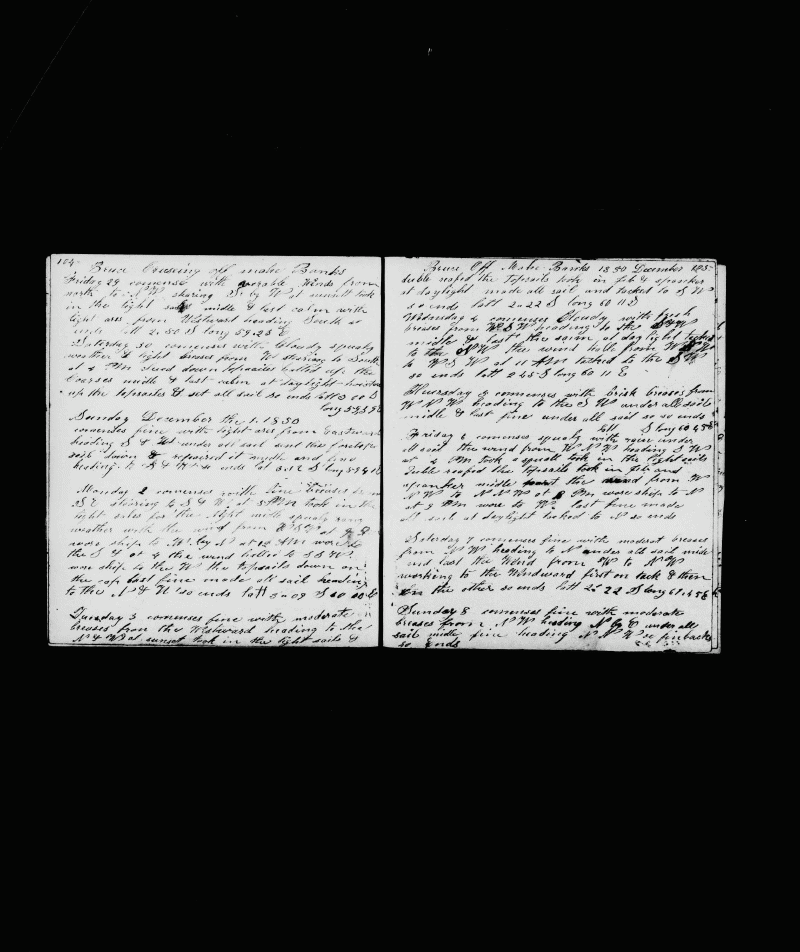 124
Bruce Cruising off mahe Banks
Friday 29 comense with Winds from
north to N W staring by W at sunsett took
in the light sails midle & last calm with
light ares from Westward heading South
ends latt 2.50 S long 59.25 E
Saturday 30 comenses with Cloudy squaly
weather & light breses from W staring to South
at 4 PM clued down topsailes hailed up the
Courses midle & last calm at daylight hoisted
up the topsailes & set all sail so ends latt 3 00 S
long 59
Sunday December the 1 1850
comenses fine with light ares from Eastward
heading S & W under all sail and the foretop
sail down & repaired it midle and fine
heading to & W so ends lat 3.12 S long 59
Monday 2 comenses with fine breases from
S E stairing to S & W at PM took in the
light sales for the Night midle squaly rany
weather with the wind from at
wore ship to W by N at 12 AM wore to
the S & at 4 the wind halled to S S W
wore ship to the W the topsails down on
the cap last fine made all sail heading
to the N & W so ends latt 3-09 S 60 00 E
Tuesday 3 comenses fine with moderate
breases from the Westward heading to the
N & W at sunset took in the light sails &
Bruce Off Mahe Banks 1850 December 125
duble reefed the topsails took in Jib & spanker
at daylight made all sail and tacked to S W
so ends latt 2-22 S long 60 11 E
Wednsday 4 comenses Cloudy with fresh
breases from W S W heading to the
midle & last the same at daylight tacked
to the N W the wind hale from
to W S W at 11 AM tacked to the S W
so ends latt 2 45 S long 60 11 E
Thursday 5 comenses with brisk breases from
W N W heading to the S W under all sail
midle & last fine under all sail so so ends
latt S long 60 45 E
Friday 6 comenses squaly with raine under
all sail the wind from W N W heading S W
at 4 PM took a squall took in the light sails
duble reefed the topsails took in Jib and
spanker midle the wind from W
N W to N N W at 8 PM wore ship to N
at 9 PM wore to W last fine made
all sail at daylight tacked to N so ends
Saturday 7 comenses fine with moderat breases
from N W heading to N under all sail midle
and last the Wind from W to N W
working to the Windward first on tack & then
on the other so ends latt 2 22 S long 61.45 E
Sunday 8 comenses fine with moderate
breases from N W heading N E under all
sail midle fine heading N N W
so ends